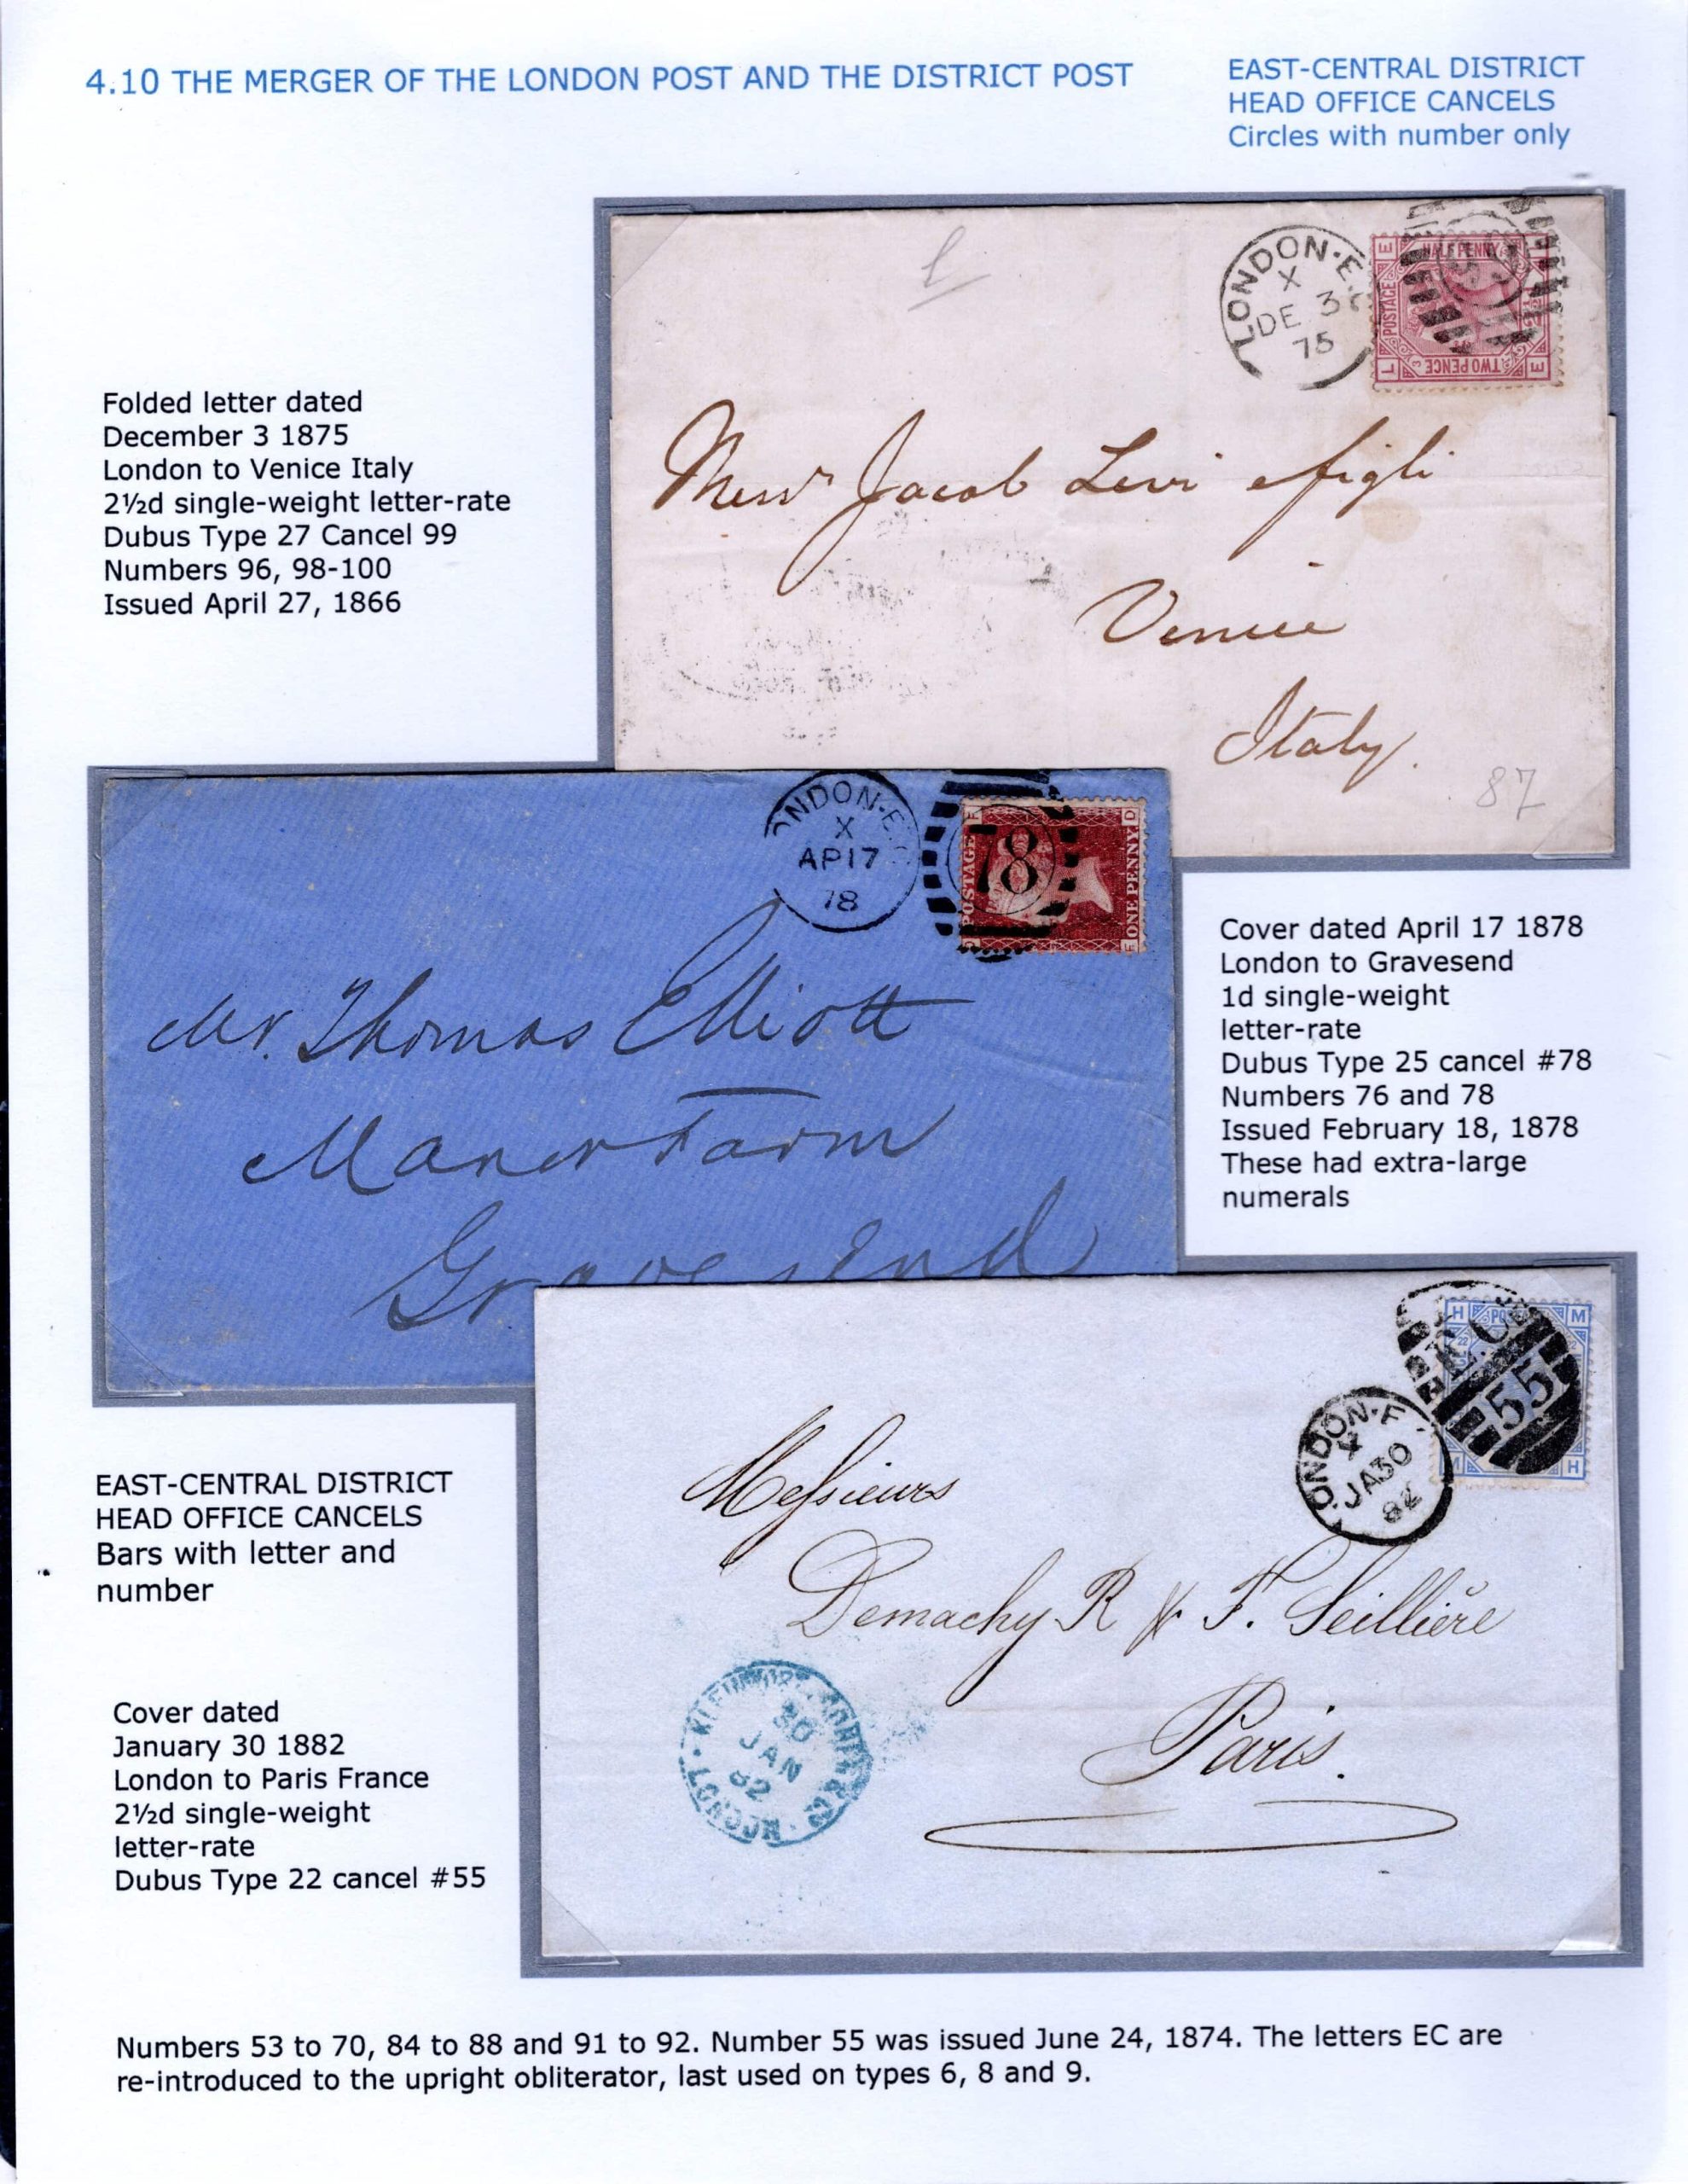 4.10 THE MERGER OF THE LONDON POST AND THE DISTRICT POST
EAST-CENTRAL DISTRICT
HEAD OFFICE CANCELS
Circles with number only
Folded letter dated
December 3 1875
London to Venice Italy
2½d single-weight letter-rate
Dubus Type 27 Cancel 99
Numbers 96, 98-100
Issued April 27, 1866
LONDON·E
X
DE 3
75
E
HALFPENNY
POSTAGE
L
TWO PENCE
E
Messrs Jacob Levi e figli
Venice
Italy.
87
ONDON·E
X
AP17
78
78
POSTAGE
ONE PENNY
F
D
D
F
Mr. Thomas Elliott
Manor Farm
Gravesend
Cover dated April 17 1878
London to Gravesend
1d single-weight
letter-rate
Dubus Type 25 cancel #78
Numbers 76 and 78
Issued February 18, 1878
These had extra-large
numerals
EAST-CENTRAL DISTRICT
HEAD OFFICE CANCELS
Bars with letter and
number
H
M
E.C.
55
M
H
ONDON·E
X
JA30
82
Messieurs
Demachy R & F. Seillière
Paris.
30
JAN
82
LONDON
Cover dated
January 30 1882
London to Paris France
2½d single-weight
letter-rate
Dubus Type 22 cancel #55
Numbers 53 to 70, 84 to 88 and 91 to 92. Number 55 was issued June 24, 1874. The letters EC are
re-introduced to the upright obliterator, last used on types 6, 8 and 9.